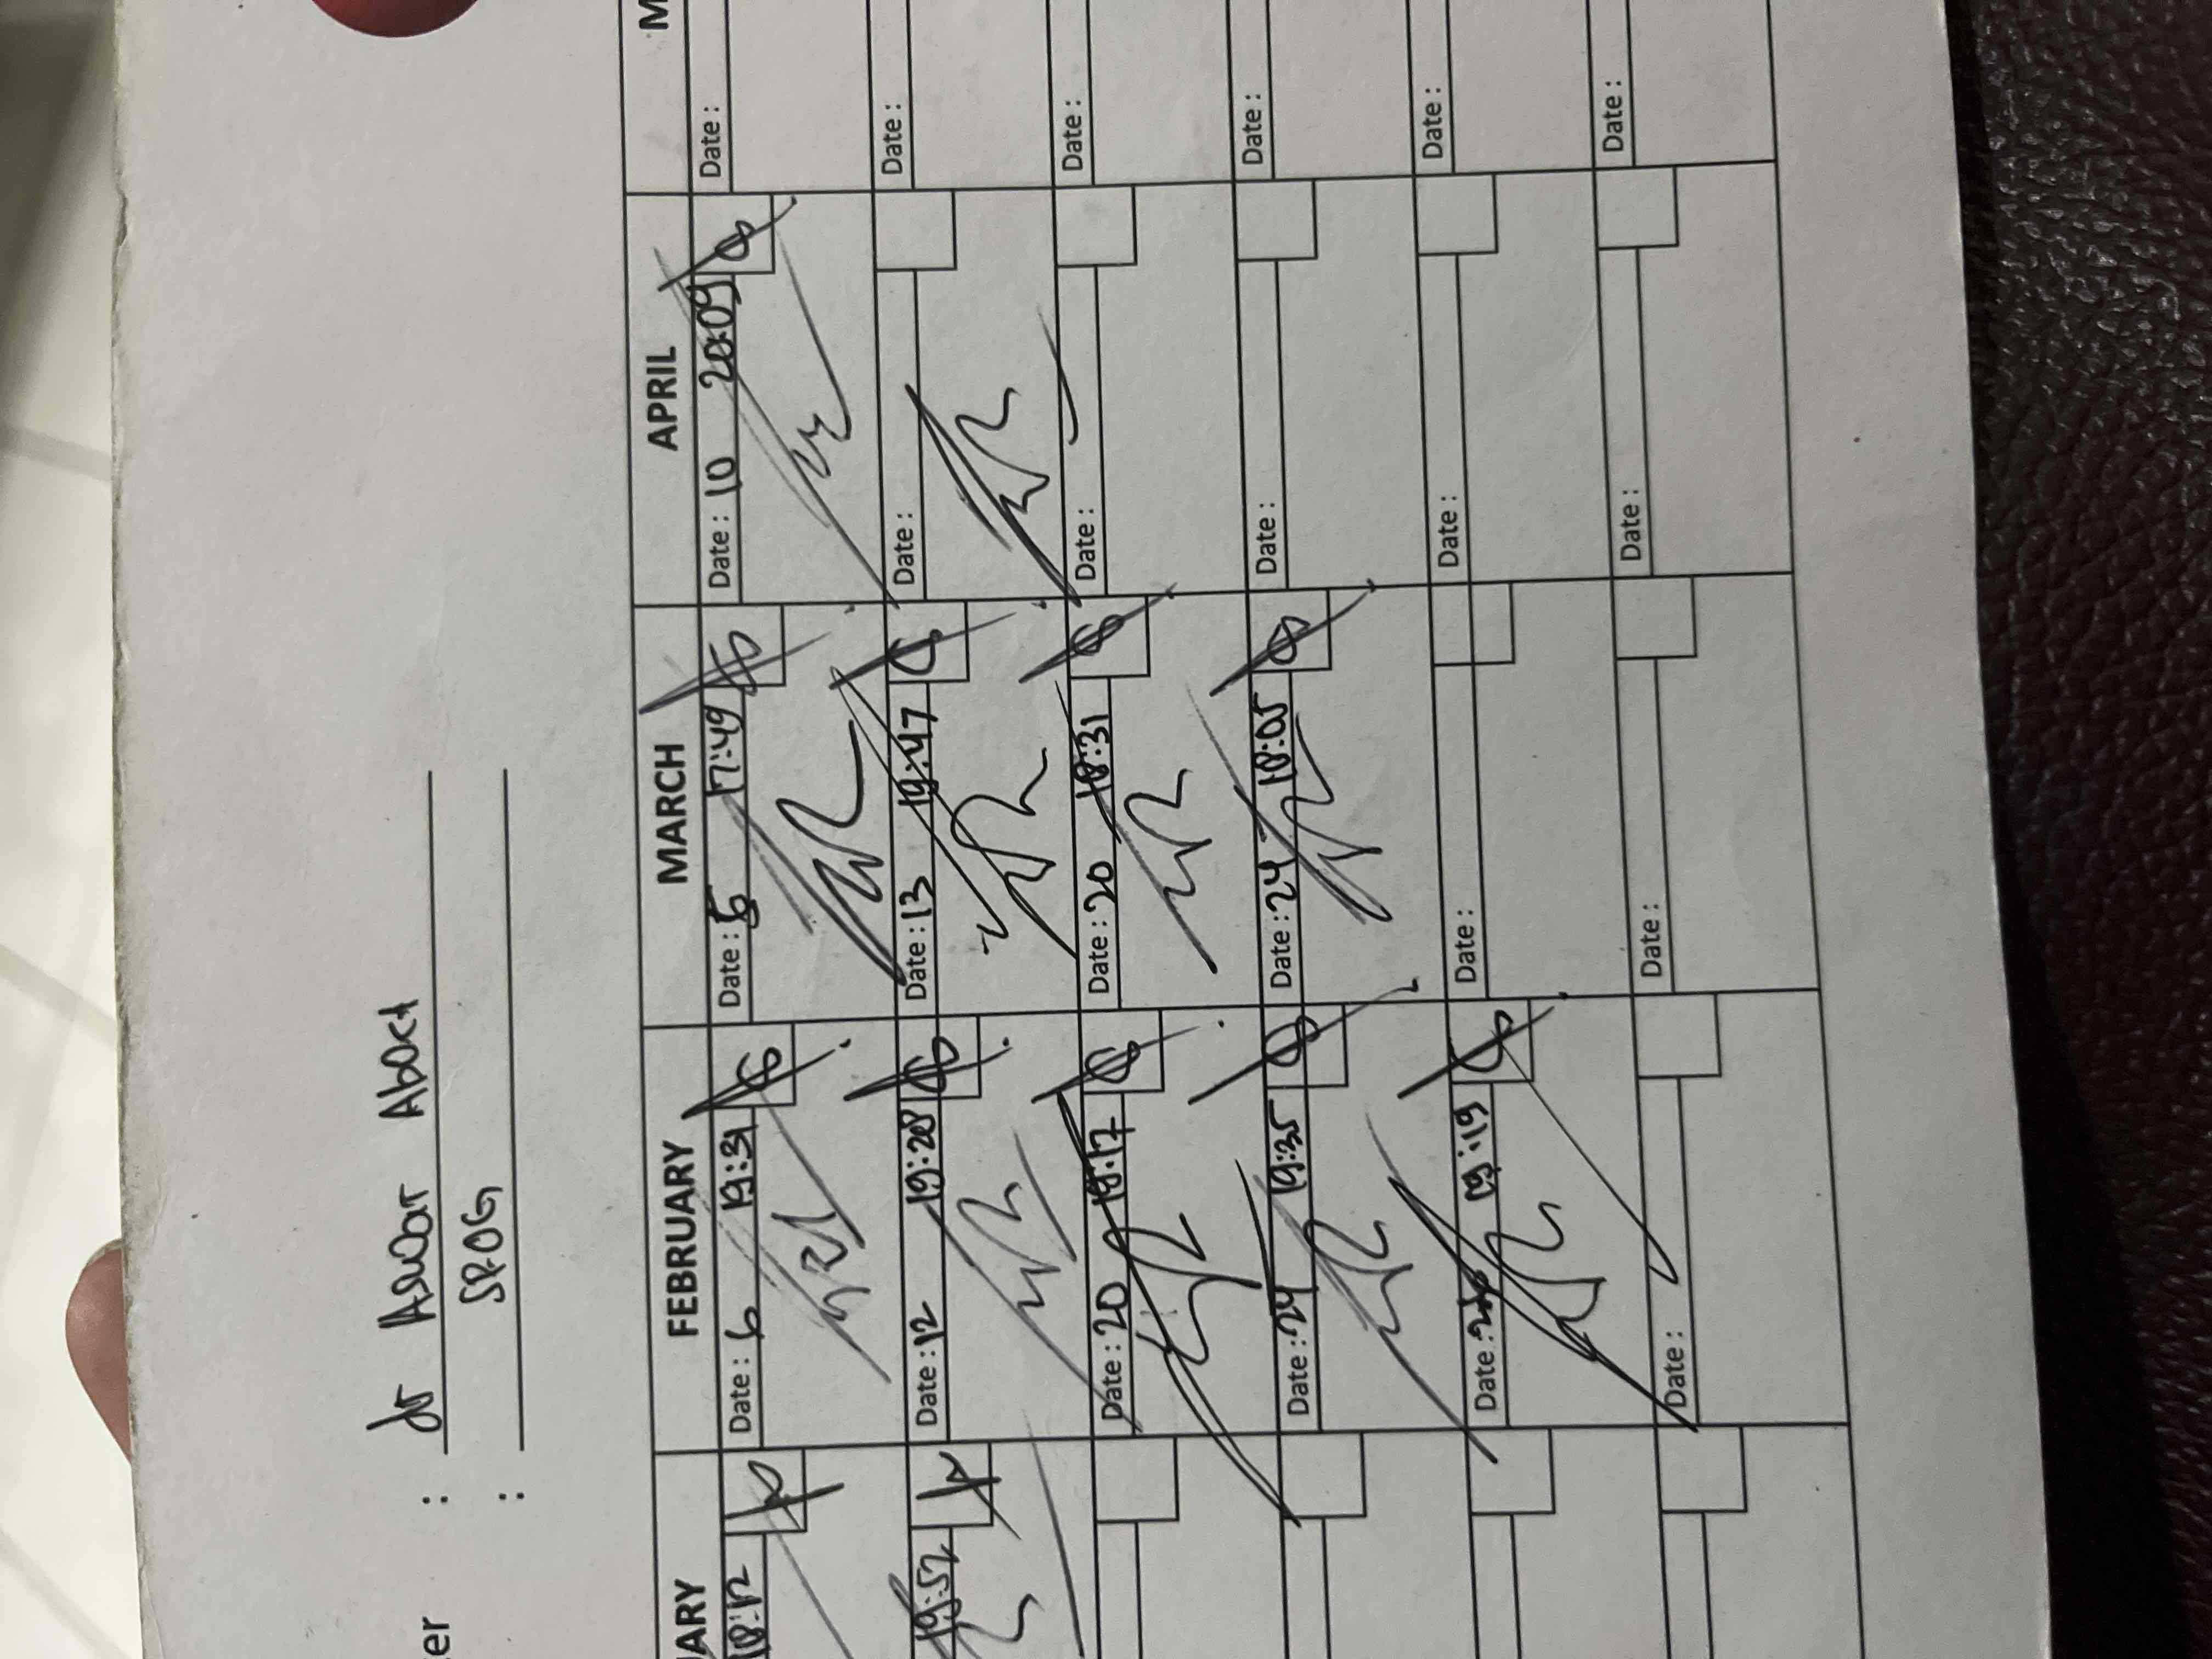 er : dr Aswar Aboet
: SPOG
UARY FEBRUARY MARCH APRIL M
18:12 Date : 6 19:31 Date : 5 17:49 Date : 10 20:09 Date :
19:52 Date : 12 19:28 Date : 13 19:47 Date : Date :
Date : 20 19:17 Date : 20 18:31 Date : Date :
Date : 24 19:35 Date : 24 18:05 Date : Date :
Date : 19:19 Date : Date : Date :
Date : Date : Date : Date :